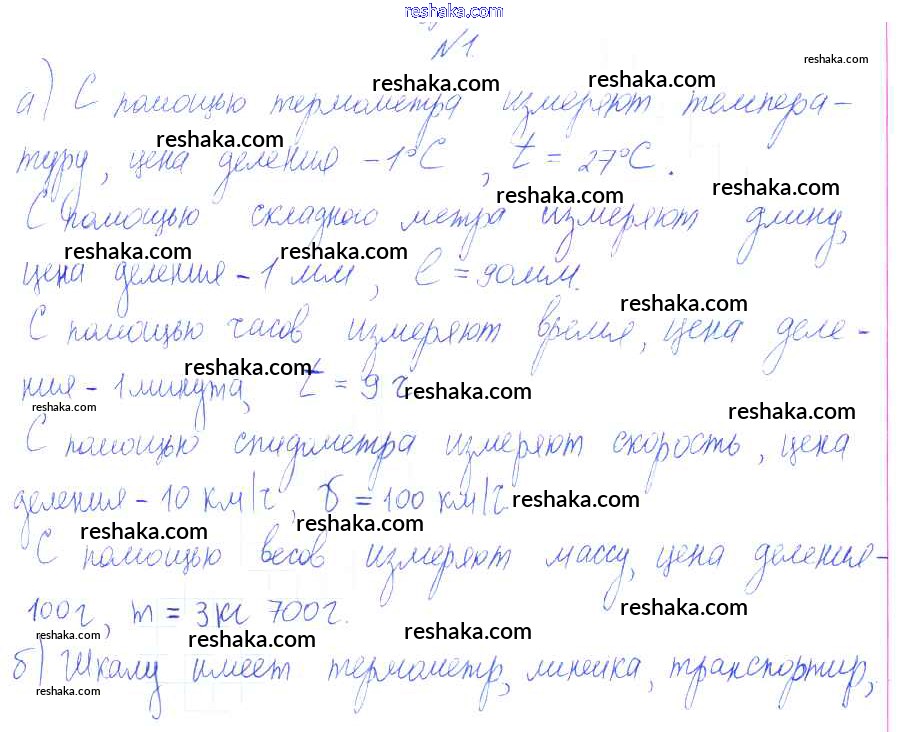 reshaka.com
№1.
reshaka.com
reshaka.com reshaka.com
а) С помощью термометра измеряют темпера-
reshaka.com
туру, цена деления -1°С, t = 27°С.
reshaka.com reshaka.com
С помощью складного метра измеряют длину,
reshaka.com reshaka.com
цена деления - 1 мм, l = 90мм.
reshaka.com
С помощью часов измеряют время, цена деле-
reshaka.com
ния - 1 минута, t = 9 ч
reshaka.com
reshaka.com reshaka.com
С помощью спидометра измеряют скорость, цена
деления - 10 км/ч, v = 100 км/ч
reshaka.com
reshaka.com reshaka.com
С помощью весов измеряют массу, цена деления-
100г, m = 3кг 700г.
reshaka.com
reshaka.com reshaka.com reshaka.com
б) Шкалу имеет термометр, линейка, транспортир,
reshaka.com